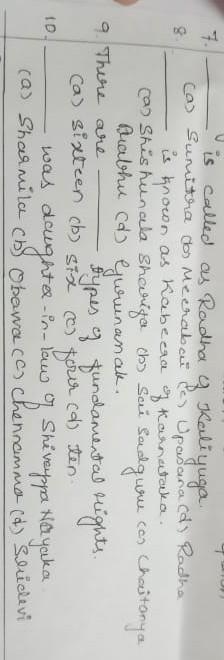 7. ______ is called as Radha of Kaliyuga.
(a) Sumitra (b) Meerabai (c) Upasana (d) Radha
8. ______ is known as Kabeera of Karnataka.
(a) Shishunala Sharifa (b) Sai Sadguru (c) Chaitanya
Prabhu (d) Gurunanak.
9. There are ______ types of fundamental rights.
(a) sixteen (b) six (c) four (d) ten.
10. ______ was daughter-in-law of Shivappa Nayaka.
(a) Sharmila (b) Obavva (c) Chennamma (d) Sridevi